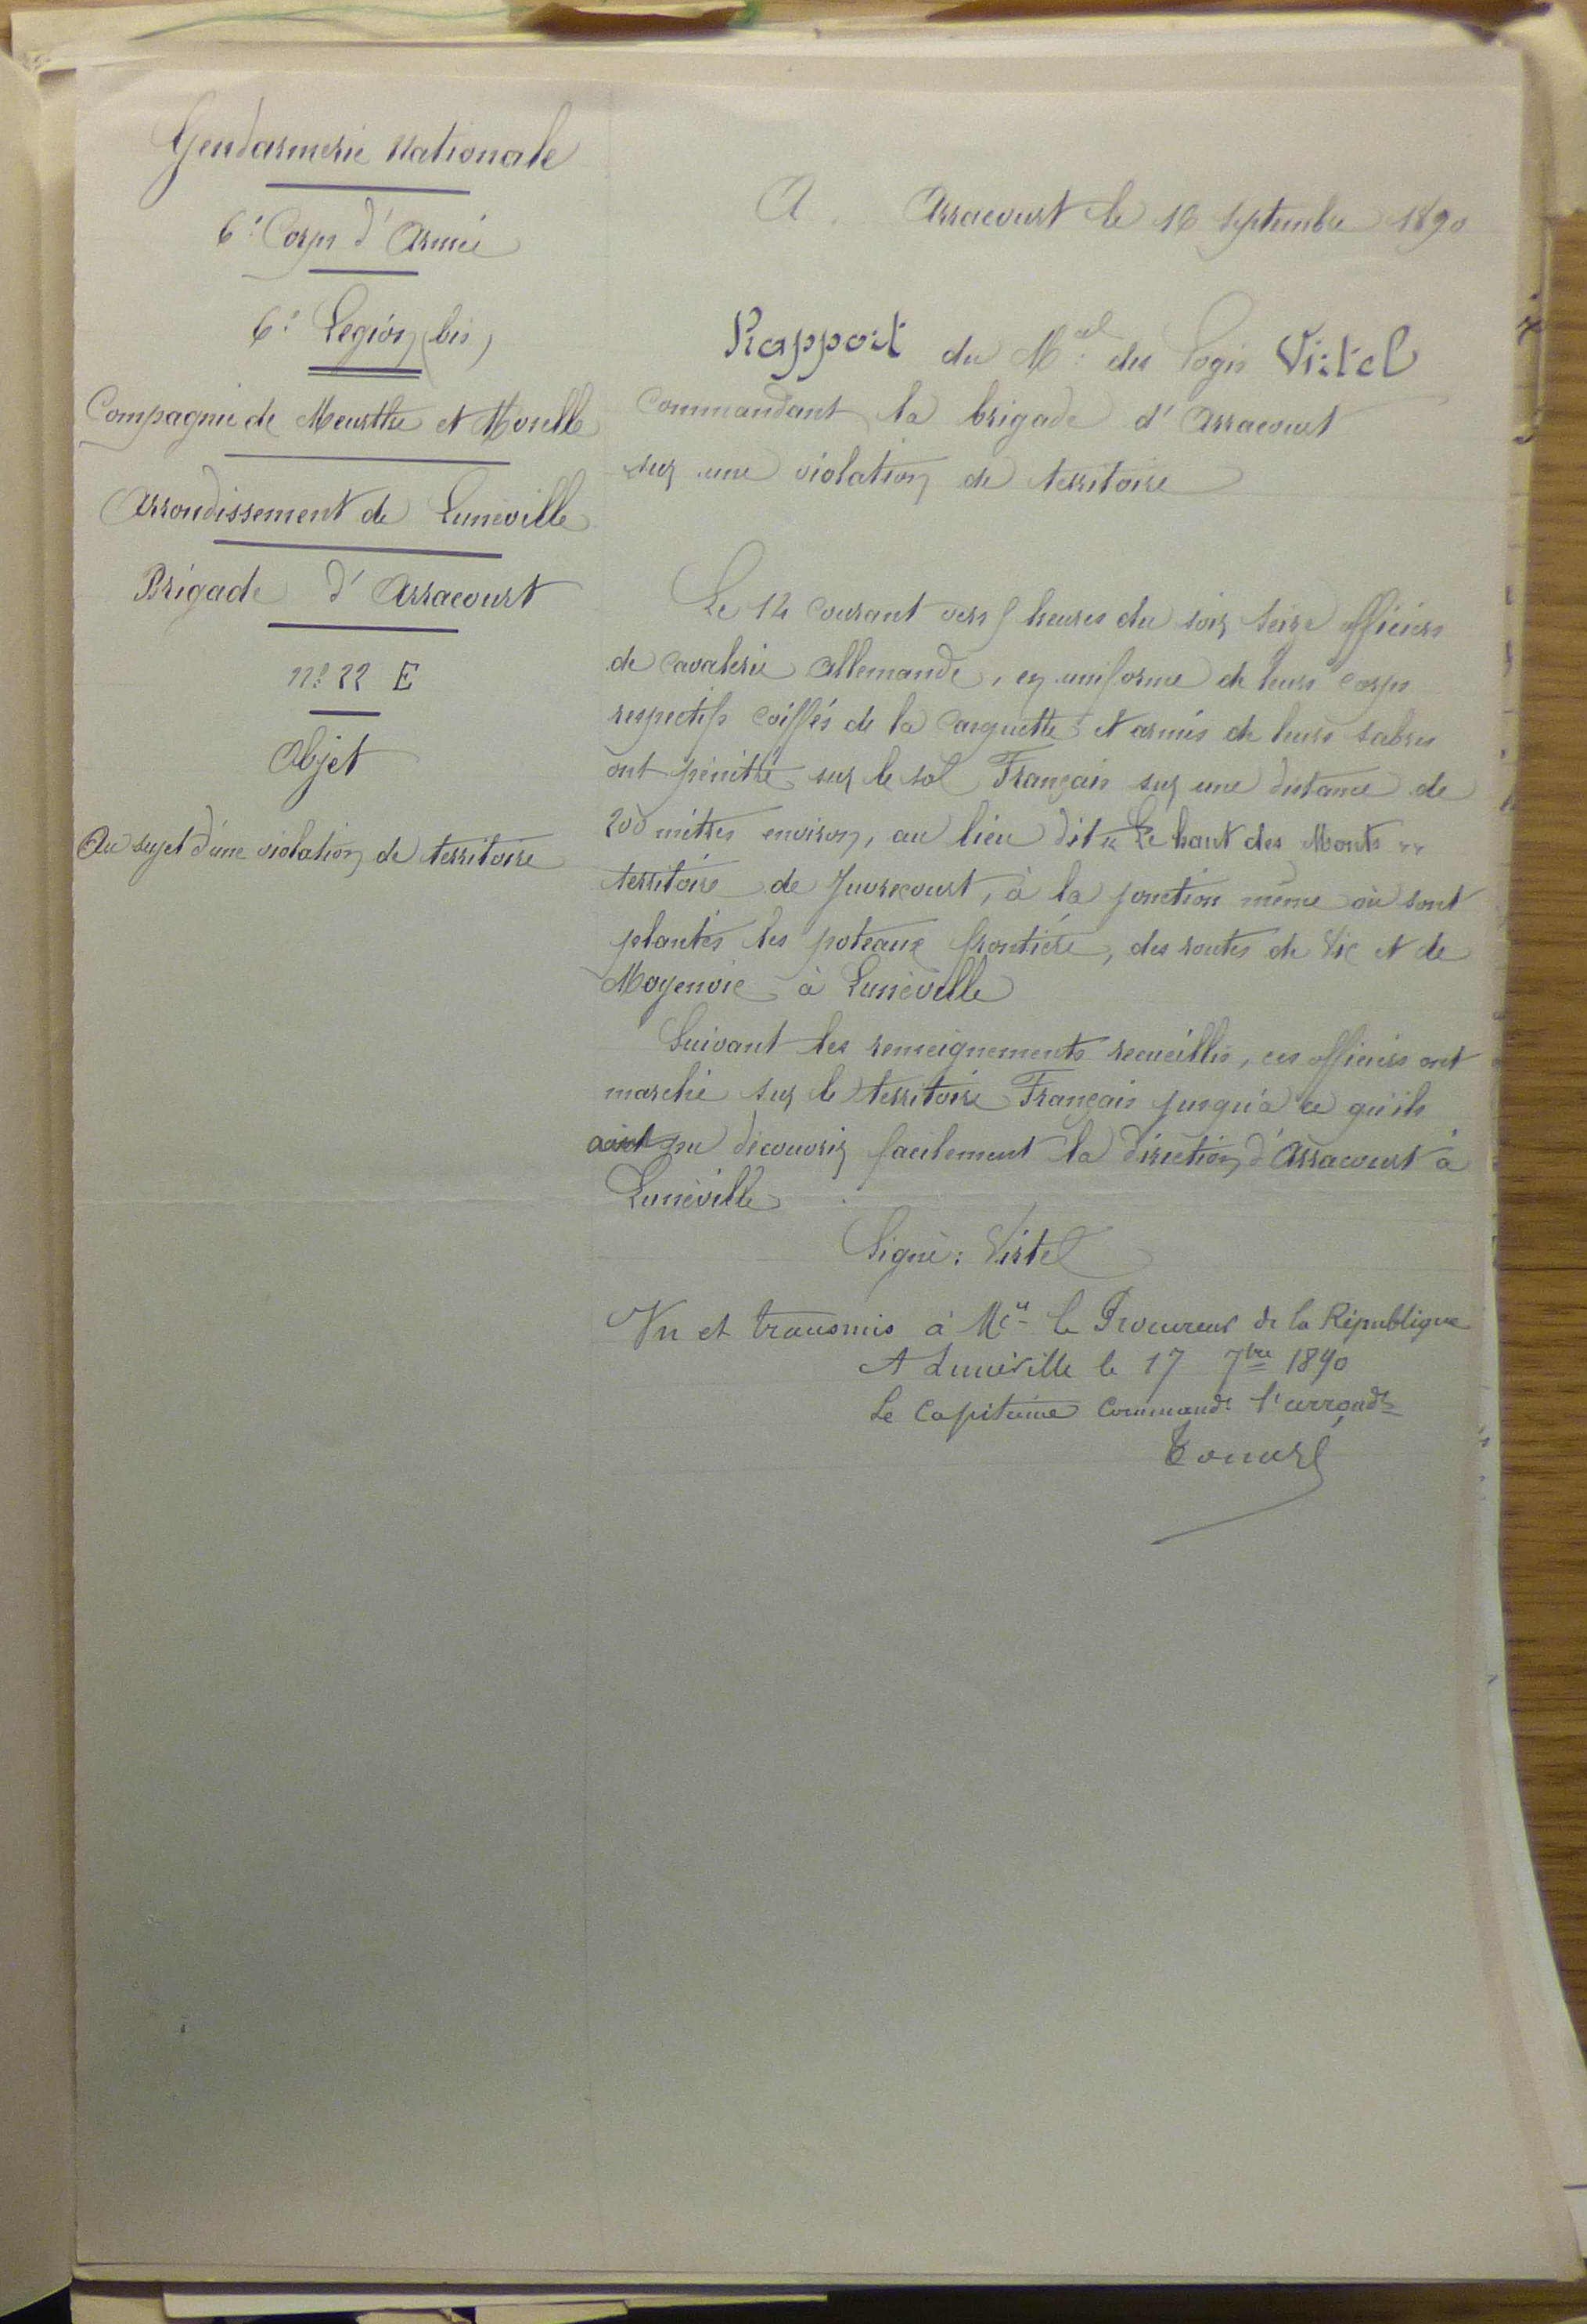 Gendarmerie Nationale
6e Corps d'Armée
6e Légion (bis)
Compagnie de Meurthe et Moselle
Arrondissement de Lunéville
Brigade d'Arracourt
n° 22 E
Objet
Au sujet d'une violation de territoire
A. Arracourt le 16 septembre 1890
Rapport du Mal des Logis Virtel
Commandant la brigade d'Arracourt
sur une violation de territoire
Le 14 courant vers heures du soir seize officiers
de cavalerie Allemande, en uniforme de leurs corps
respectifs coiffés de la casquette et armés de leurs sabres
ont pénétré sur le sol Français sur une distance de
200 mètres environ, au lieu dit « Le haut des Monts »
territoire de Juvrecourt, à la jonction même où sont
plantés les poteaux frontière, des routes de Vic et de
Moyenvic à Lunéville
Suivant les renseignements recueillis, ces officiers ont
marché sur le territoire Français jusqu'à ce qu'ils
aient pu découvrir facilement la direction d'Arracourt à
Lunéville
Signé : Virtel
Vu et transmis à Mr le Procureur de la République
A Lunéville le 17 7bre 1890
Le Capitaine Commandt l'arrondt